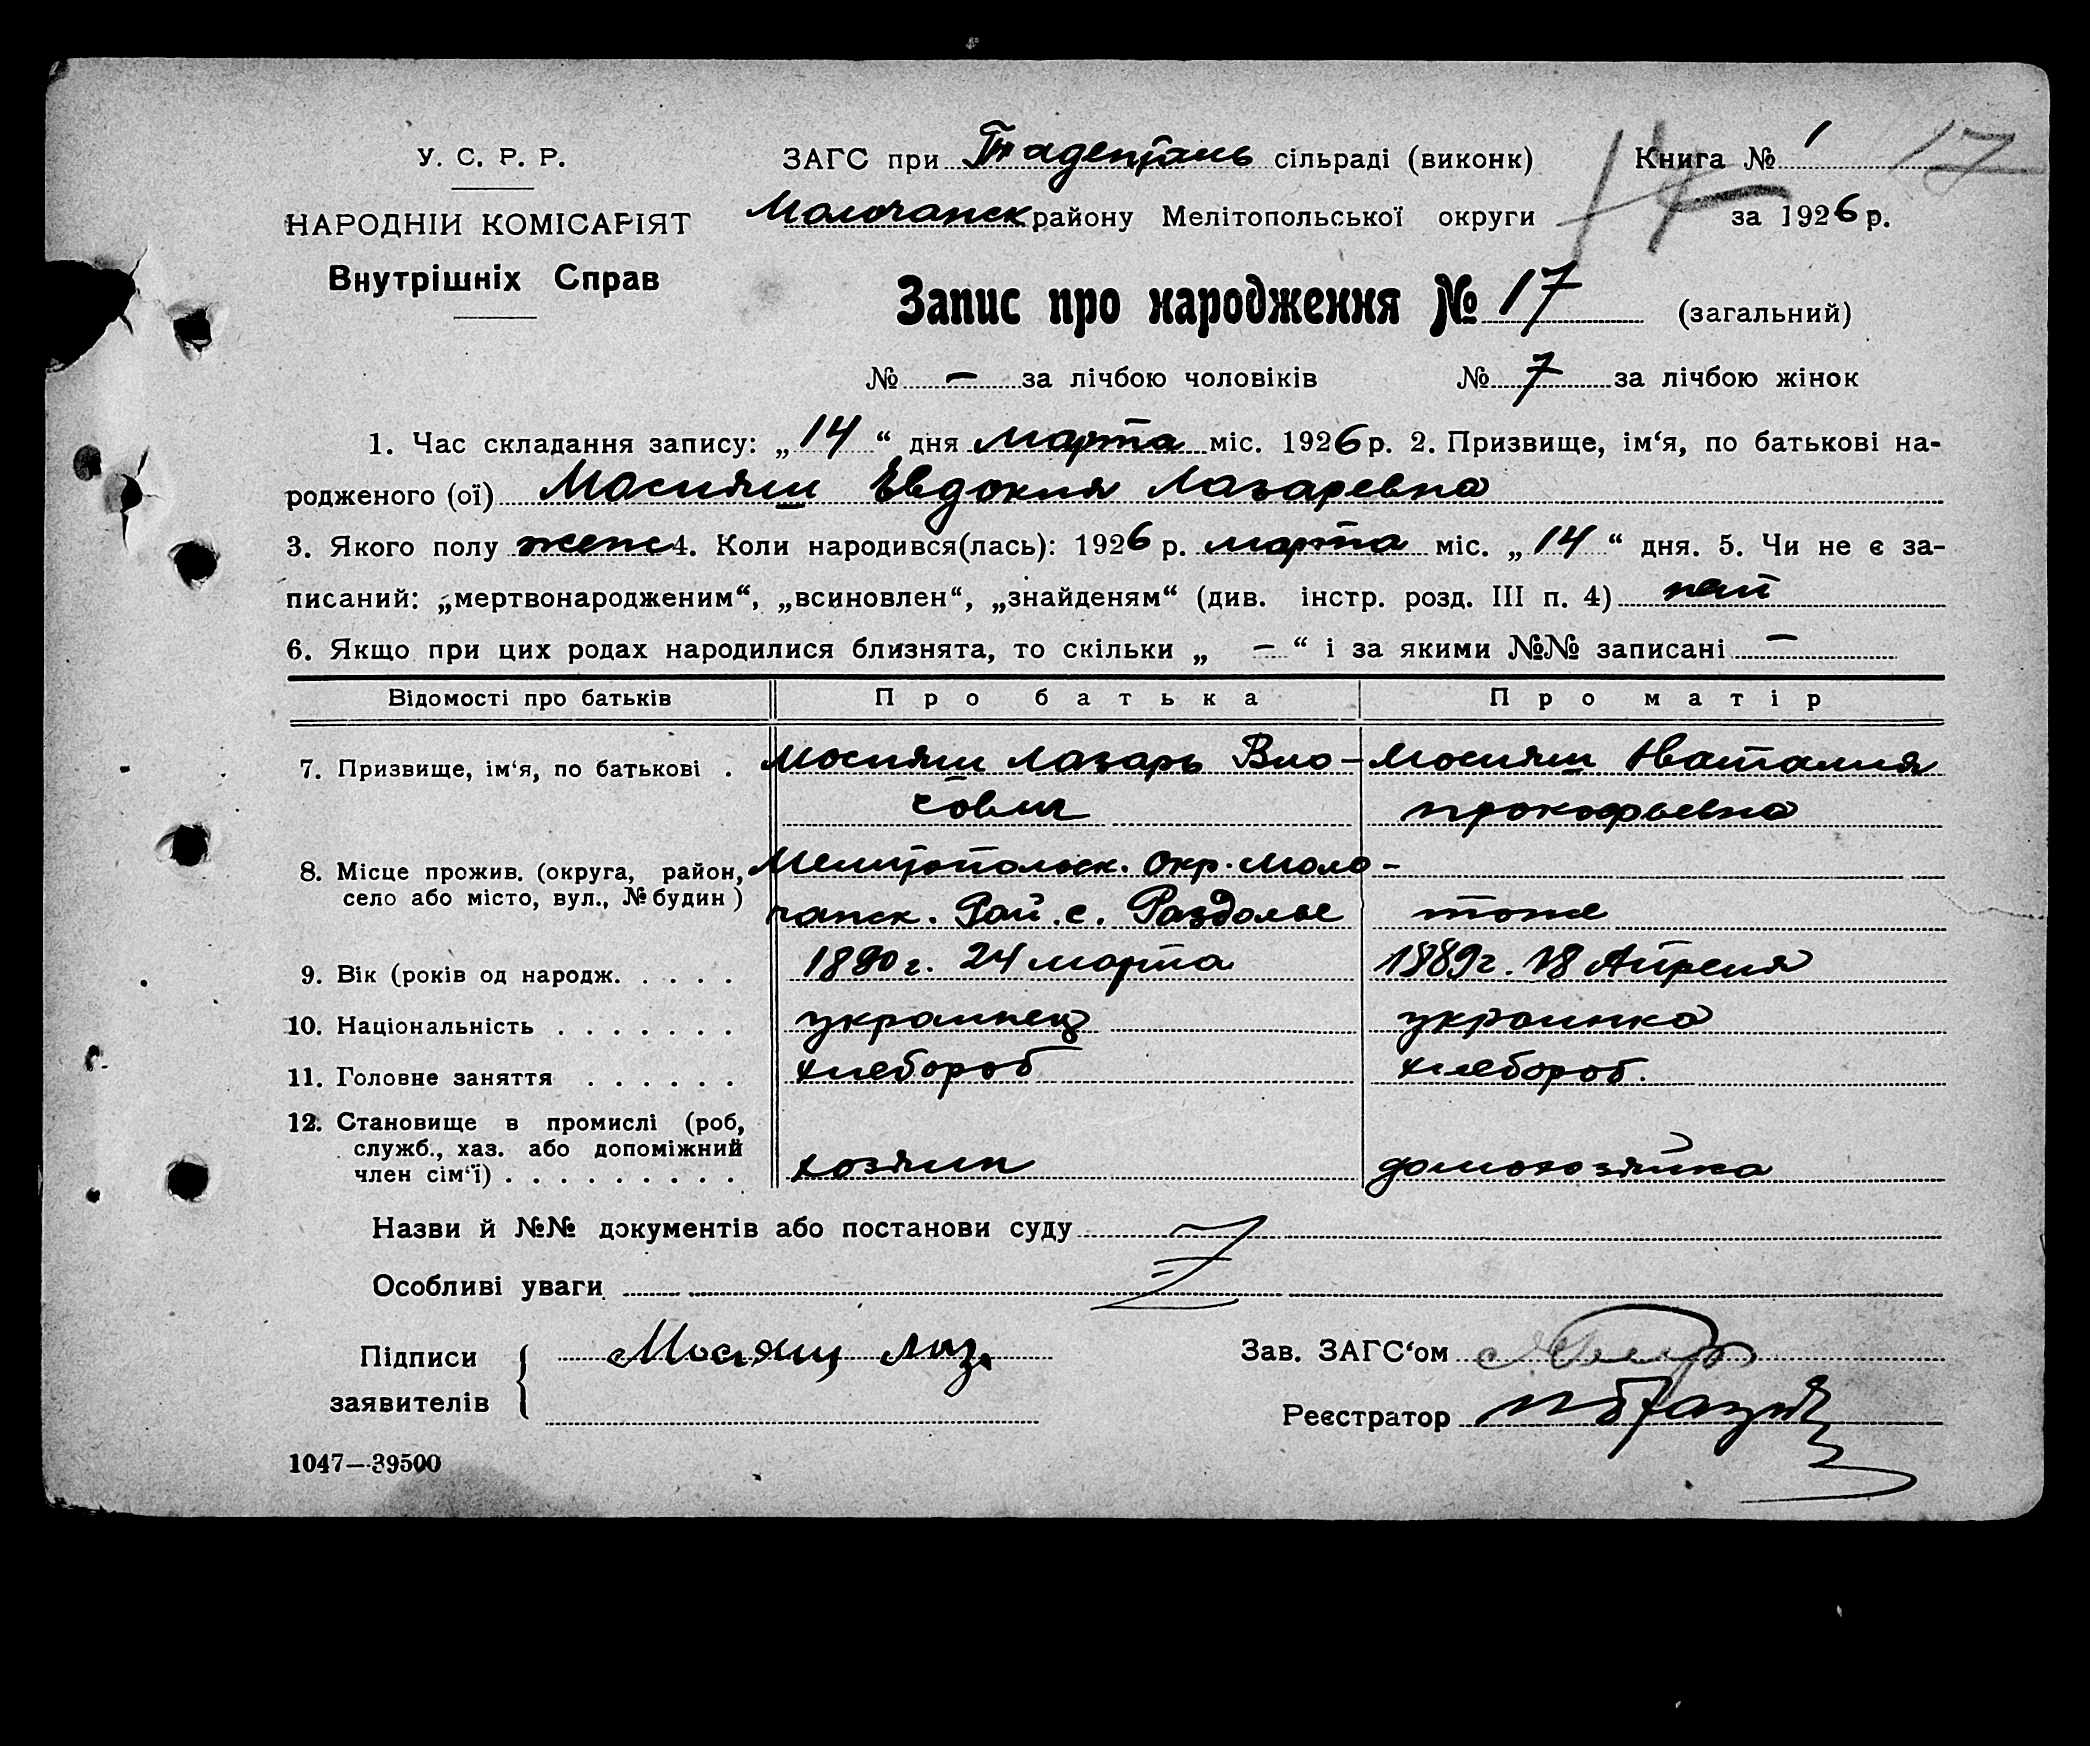 17
У. С. Р. Р.
ЗАГС при сільраді (виконк) Книга № 1
НАРОДНІЙ КОМІСАРІЯТ
Молочанск району Мелітопольської округи 17 за 1926 р.
Внутрішніх Справ
Запис про народження № 17 (загальний)
№ – за лічбою чоловіків № 7 за лічбою жінок
1. Час складання запису: „14“ дня марта міс. 1926 р. 2. Призвище, ім‘я, по батькові на-
родженого (ої) Мосияш Евдокия Лазаревна
3. Якого полу женс 4. Коли народився(лась): 1926 р. марта міс. „14“ дня. 5. Чи не є за-
писаний: „мертвонародженим“, „всиновлен“, „знайденям“ (див. інстр. розд. III п. 4)
6. Якщо при цих родах народилися близнята, то скільки „ – “ і за якими №№ записані –
Відомості про батьків Про батька Про матір
7. Призвище, ім‘я, по батькові . Мосияш Лазарь Вла- Мосияш Наталия
прокофьевна
8. Місце прожив. (округа, район, Мелитопольск. Окр. Моло-
село або місто, вул., № будин) чанск. Рай. с. Раздолье тоже
9. Вік (років од народж. . . . . 1890 г. 24 марта 1889 г. 18 Апреля
10. Національність . . . . . . . украинец украинка
11. Головне заняття . . . . . . хлебороб хлебороб.
12. Становище в промислі (роб,
служб., хаз. або допоміжний
член сім‘ї) . . . . . . . . . хозяин домохозяйка
Назви й №№ документів або постанови суду
Особливі уваги
Підписи Мосяящ Лаз. Зав. ЗАГС‘ом
заявителів Реєстратор
1047—39500